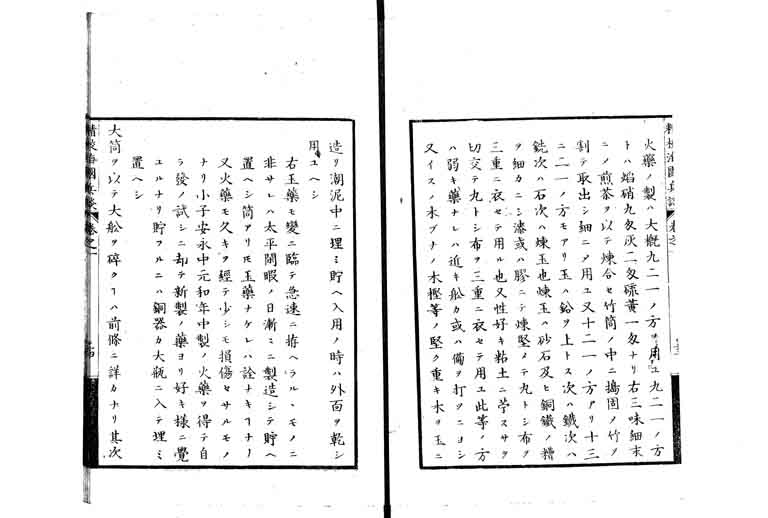 火藥ノ製ハ大概九二一ノ方ヲ用ユ九二一ノ方
トハ焰硝九匁灰二匁硫黄一匁ナリ右三味細末
ニノ煎茶ヲ以テ煉合セ竹筒ノ中ニ搗固ノ竹ヲ
割テ取出シ細ニノ用ユ又十二一ノ方アリ十三
二一ノ方モアリ玉ハ鉛ヲ上トス次ハ鐵次ハ
銃次ハ石次ハ煉玉也煉玉ハ砂石及ヒ銅鐵ノ糟
ヲ細カニシ漆或ハ膠ニテ煉堅メテ丸トシ布ヲ
三重ニ衣セテ用ル也又性好キ粘土ニ苧スサヲ
切交テ丸トシ布ヲ三重ニ衣セテ用ユ此等ノ方
ハ弱キ藥ナレハ近キ舩カ或ハ備ヲ打ツニヨシ
又イスノ木ブナノ木樫等ノ堅ク重キ木ヲ玉ニ
精校海國兵談 卷之一
造リ潮泥中ニ埋ミ貯ヘ入用ノ時ハ外面ヲ乾シ
用ユヘシ
右玉藥モ變ニ臨テ急速ニ拵ヘラル丶モノニ
非サレハ太平閑暇ノ日漸ミニ製造シテ貯ヘ
置ヘシ筒アリ𪜈玉藥ナケレハ詮ナキヿナリ
又火藥モ久キヲ經テ少シモ損傷セサルモノ
ナリ小子安永中元和年中製ノ火藥ヲ得テ自
ラ發ノ試シニ却テ新製ノ藥ヨリ好キ様ニ覺
エルナリ貯フルニハ銅器カ大瓶ニ入テ埋ミ
置ヘシ
大筒ヲ以テ大舩ヲ碎クヿハ前條ニ詳カナリ其次
精校海國兵談 卷之一